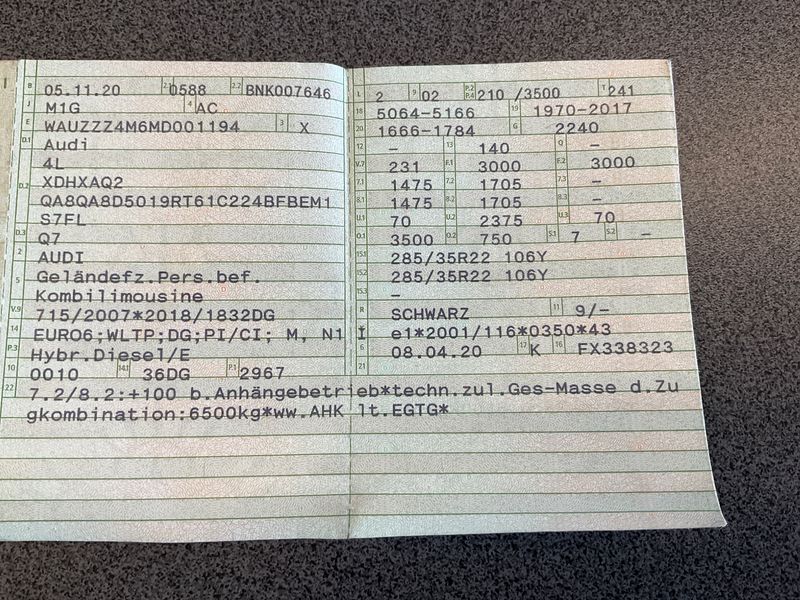 B 05.11.20 2.1 0588 2.2 BNK007646
J M1G 4 AC
E WAUZZZ4M6MD001194 3 X
D.1 Audi
4L
D.2 XDHXAQ2
QA8QA8D5019RT61C224BFBEM1
S7FL
D.3 Q7
2 AUDI
5 Geländefz.Pers.bef.
Kombilimousine
V.9 715/2007*2018/1832DG
14 EURO6;WLTP;DG;PI/CI; M, N1 I
P.3 Hybr.Diesel/E
10 0010 14.1 36DG P.1 2967
L 2 9 02 P.2 P.4 210 /3500 T 241
18 5064-5166 19 1970-2017
20 1666-1784 G 2240
12 – 13 140 Q –
V.7 231 F.1 3000 F.2 3000
7.1 1475 7.2 1705 7.3 –
8.1 1475 8.2 1705 8.3 –
U.1 70 U.2 2375 U.3 70
O.1 3500 O.2 750 S.1 7 S.2 –
15.1 285/35R22 106Y
15.2 285/35R22 106Y
15.3 –
R SCHWARZ 11 9/–
K e1*2001/116*0350*43
6 08.04.20 17 K 16 FX338323
21
22 7.2/8.2:+100 b.Anhängebetrieb*techn.zul.Ges-Masse d.Zu
gkombination:6500kg*ww.AHK lt.EGTG*